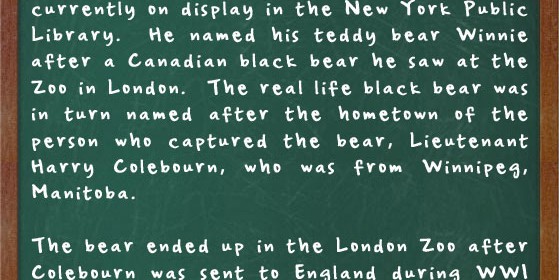 currently on display in the New York Public
Library. He named his teddy bear Winnie
after a Canadian black bear he saw at the
Zoo in London. The real life black bear was
in turn named after the hometown of the
person who captured the bear, Lieutenant
Harry Colebourn, who was from Winnipeg,
Manitoba.

The bear ended up in the London Zoo after
Colebourn was sent to England during WWI